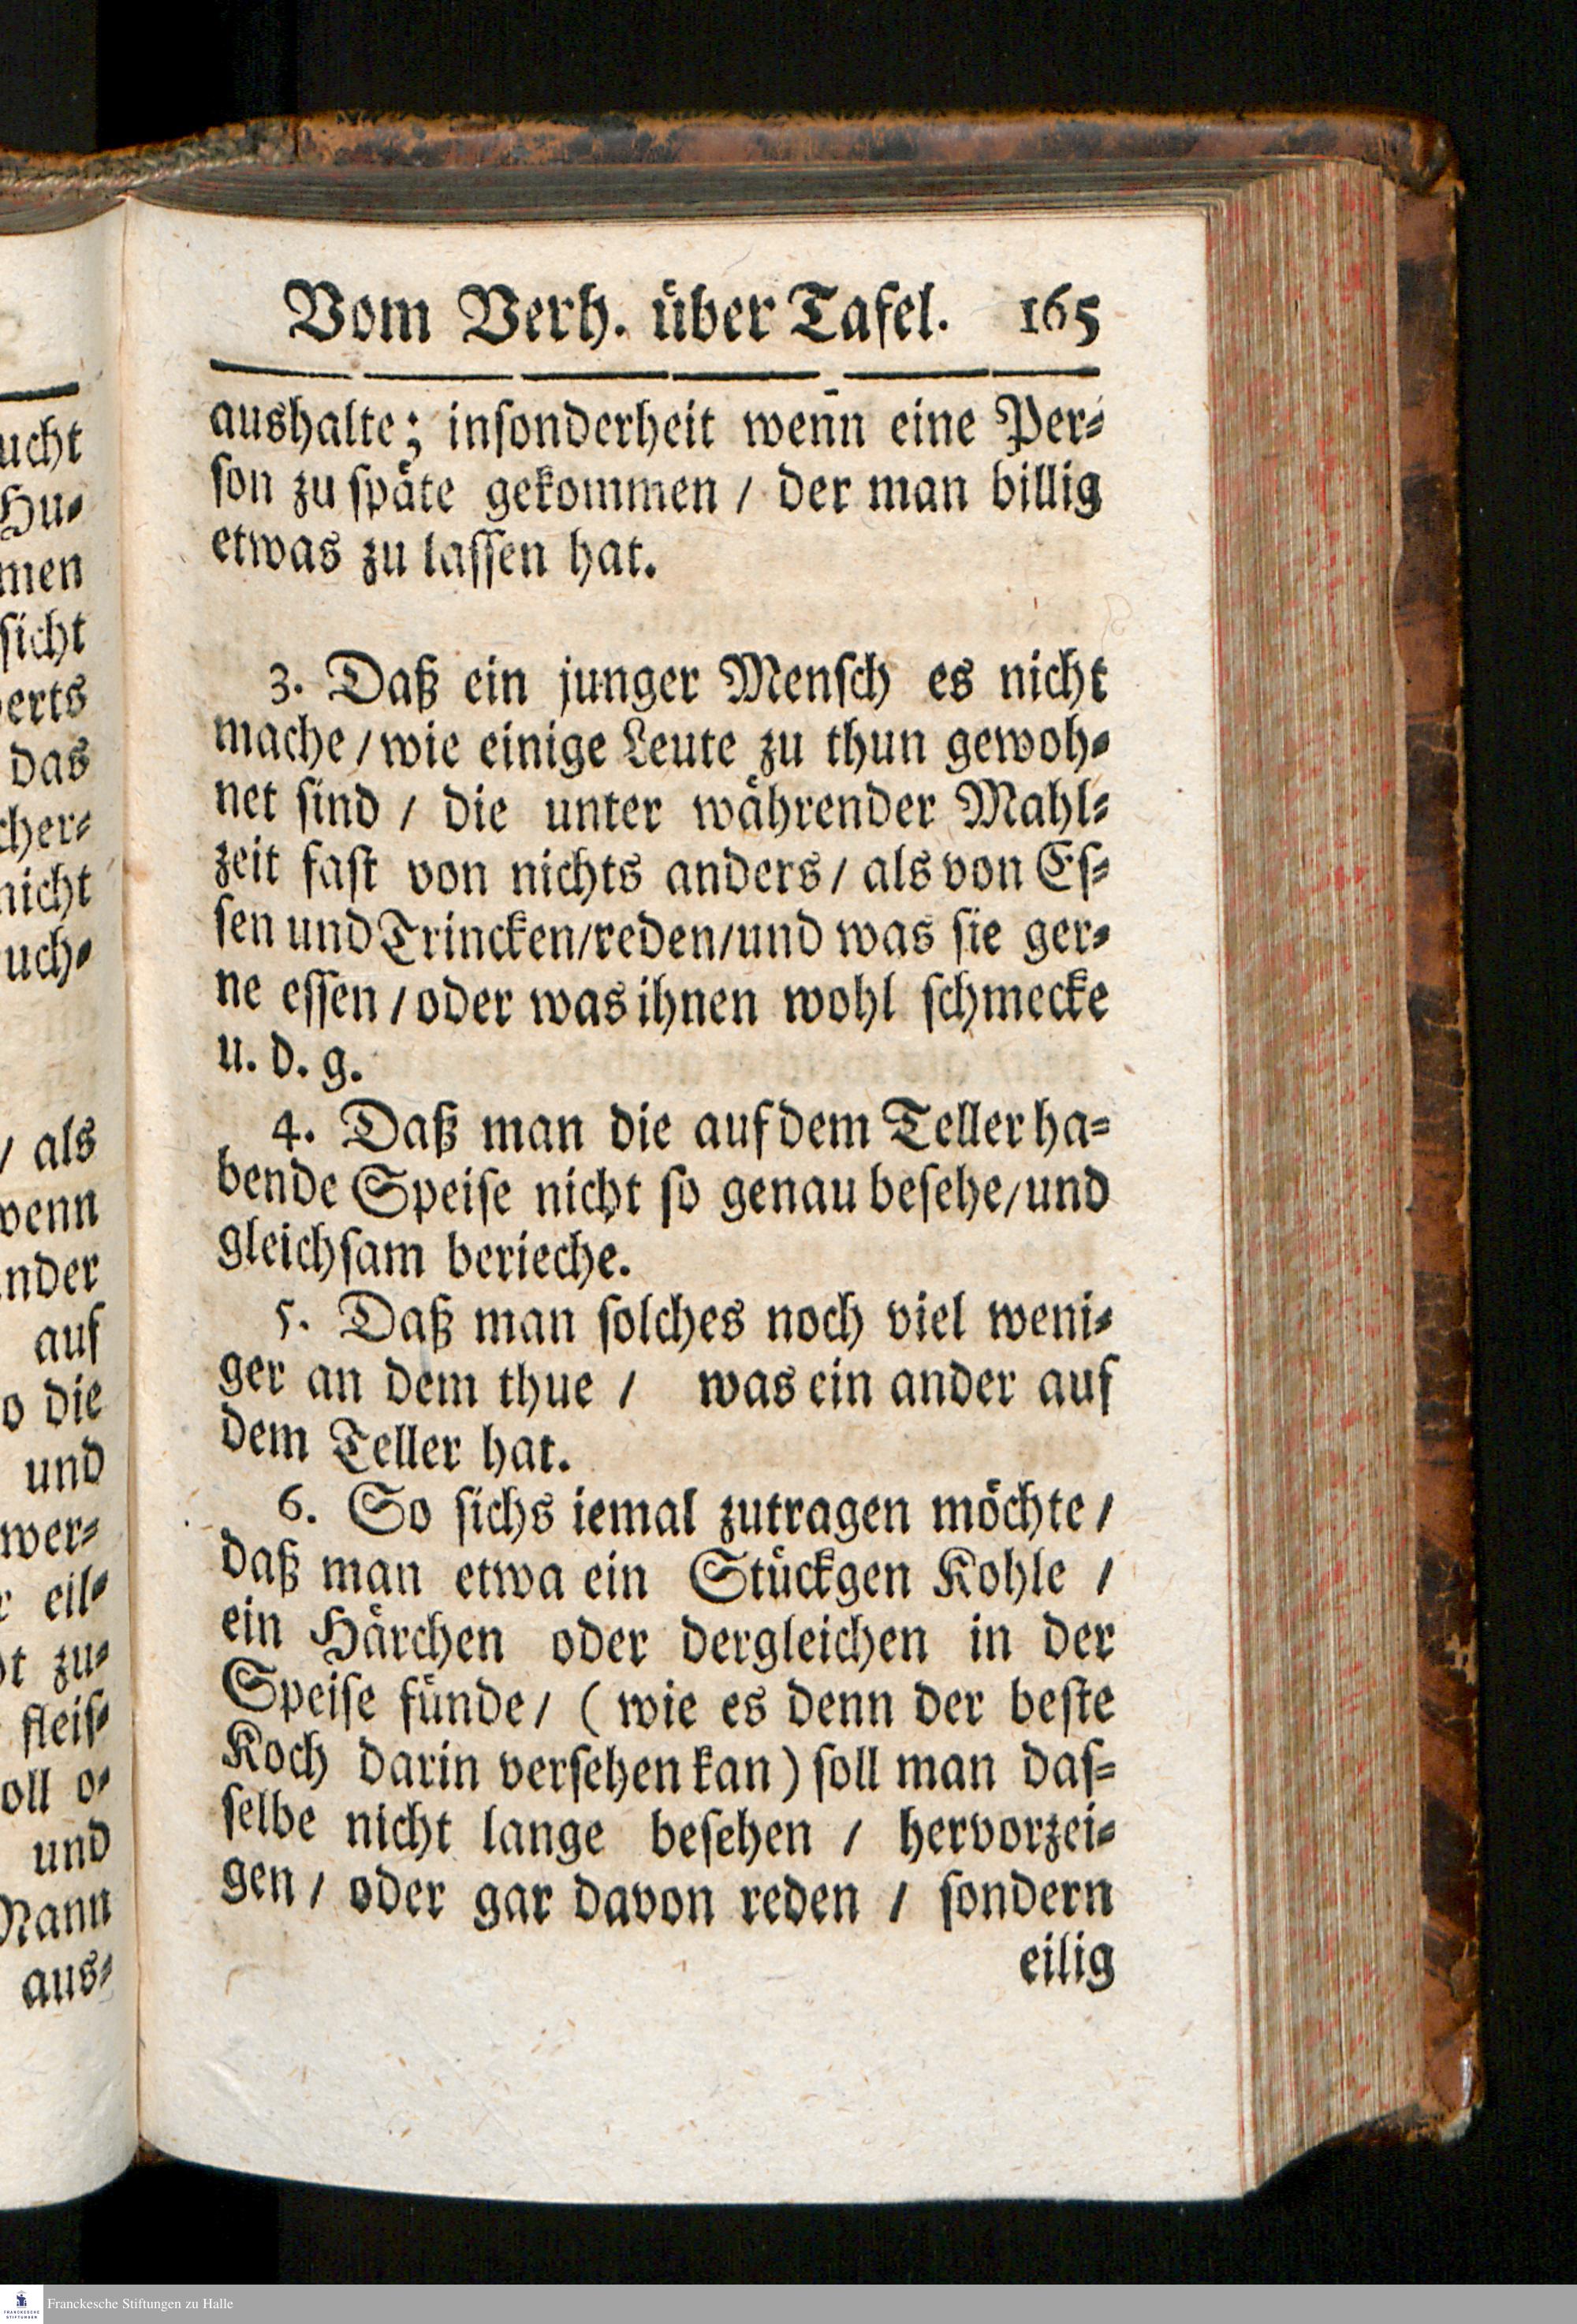 ucht
Hu-
men
sicht
erts
das
cher-
nicht
uch-
/ als
wenn
nder
auf
o die
und
wer-
eil-
t zu-
fleis-
oll o-
und
Mann
aus-
Vom Verh. über Tafel. 165
aushalte; insonderheit wenn eine Per-
son zu späte gekommen / der man billig
etwas zu lassen hat.
3. Daß ein junger Mensch es nicht
mache / wie einige Leute zu thun gewoh-
net sind / die unter währender Mahl-
zeit fast von nichts anders / als von Es-
sen und Trincken/reden/und was sie ger-
ne essen / oder was ihnen wohl schmecke
u. d. g.
4. Daß man die auf dem Teller ha-
bende Speise nicht so genau besehe/und
gleichsam berieche.
5. Daß man solches noch viel weni-
ger an dem thue / was ein ander auf
dem Teller hat.
6. So sichs iemal zutragen möchte /
daß man etwa ein Stückgen Kohle /
ein Härchen oder dergleichen in der
Speise fünde / ( wie es denn der beste
Koch darin versehen kan ) soll man das-
selbe nicht lange besehen / hervorzei-
gen / oder gar davon reden / sondern
eilig
FRANCKESCHE
STIFTUNGEN
Franckesche Stiftungen zu Halle